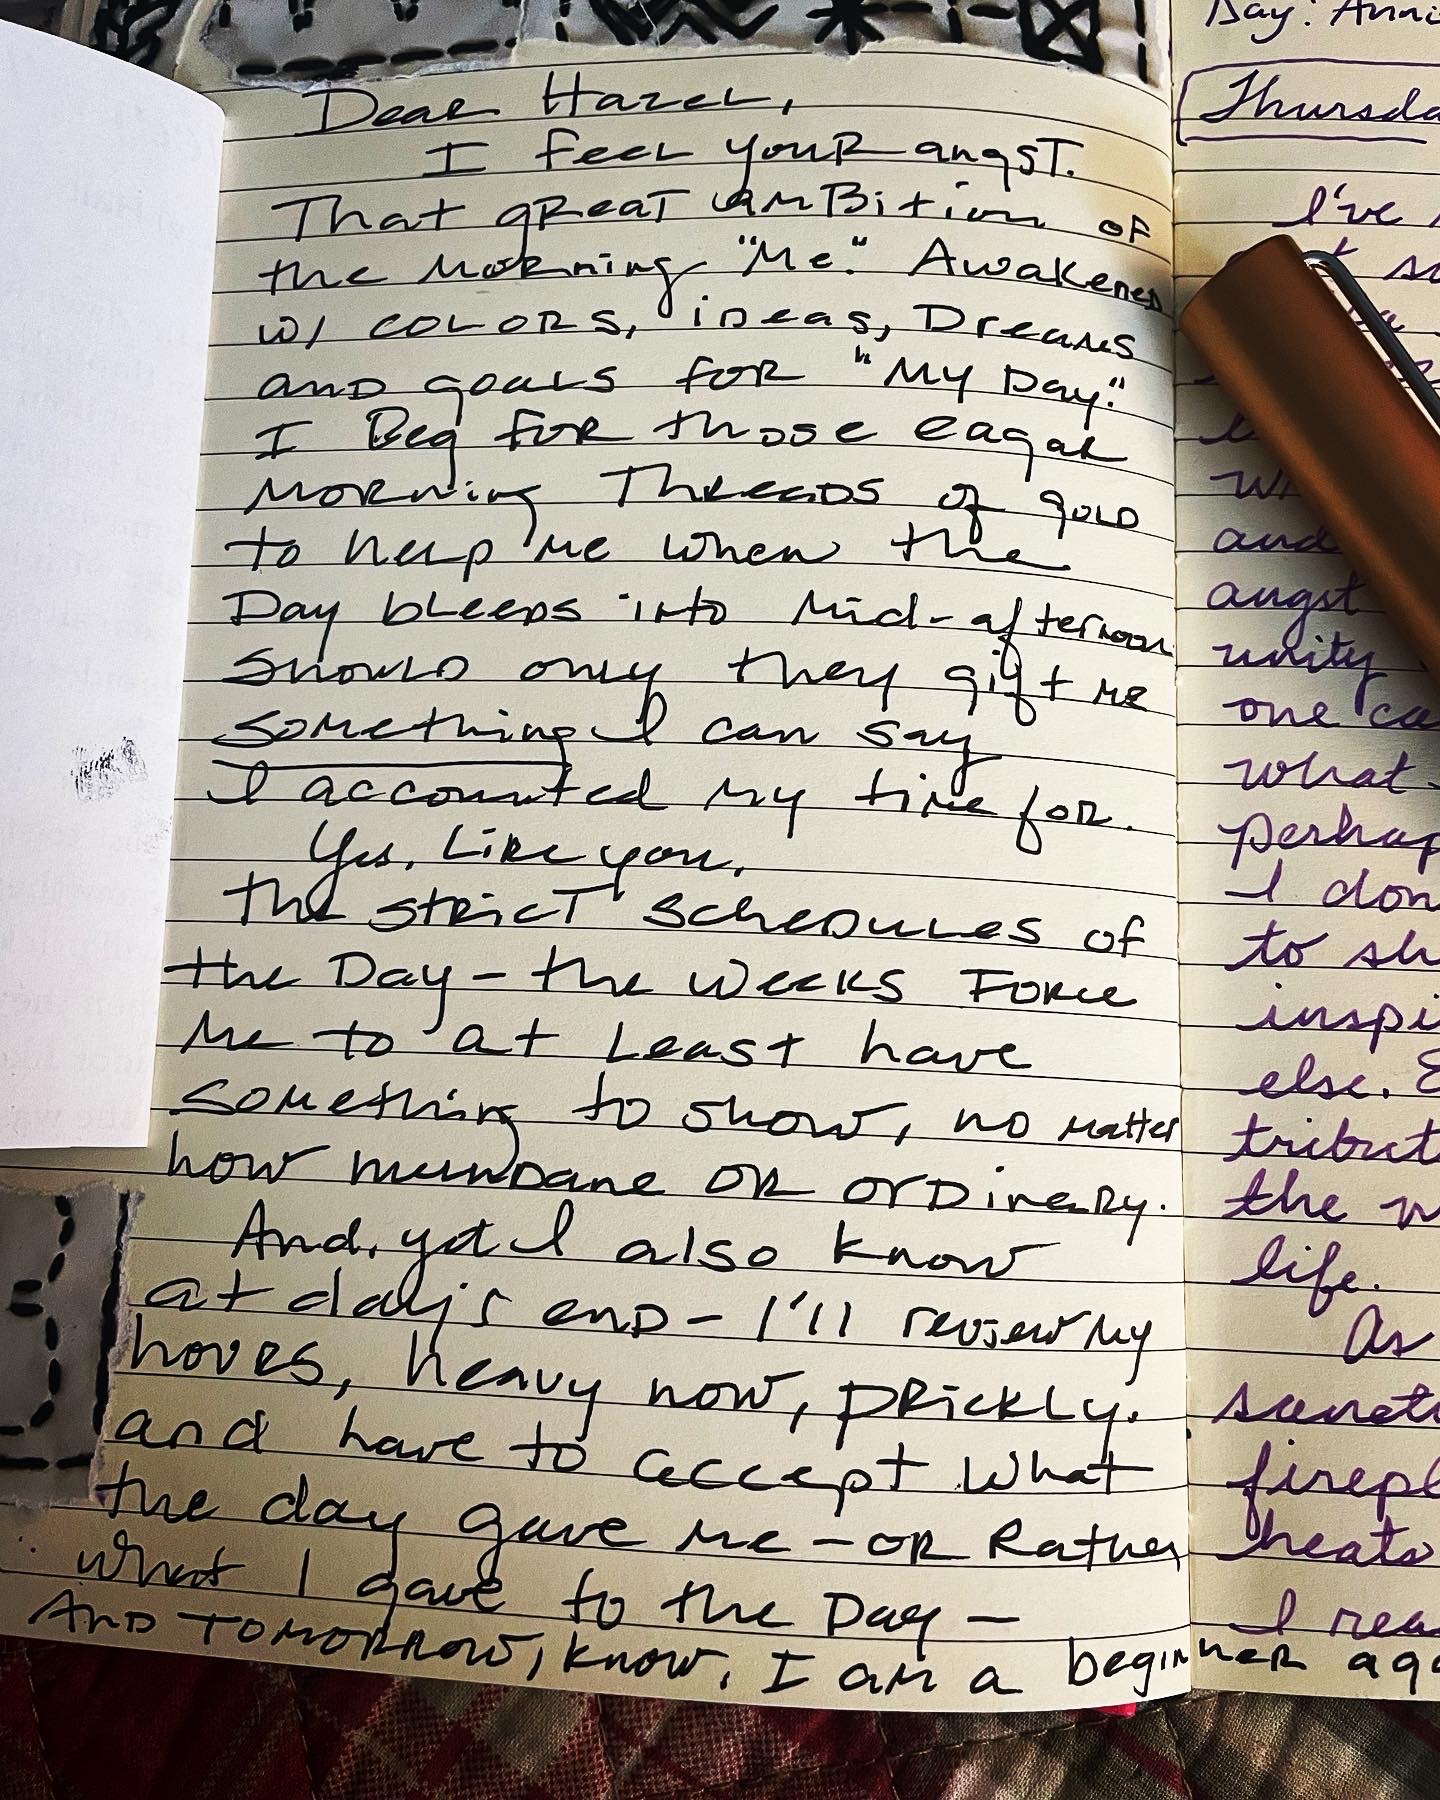 Dear Hazel,
I feel your angst.
That great ambition of
the morning "Me." Awakened
w/ colors, ideas, Dreams
and goals for "My Day."
I Beg for those eagar
morning Threads of gold
to help me when the
Day bleeds into mid-afternoon
should only they gift me
something I can say
I accounted my time for.
Yes, Like you,
the strict schedules of
the Day - the weeks Force
me to at Least have
something to show, no matter
how mundane or ordinary.
And, yet I also know
at day's end - I'll review my
hours, heavy now, prickly.
and have to accept what
the day gave me - or Rather
what I gave to the Day -
And Tomorrow, know, I am a beginner aga
Day: Anni
Thursda
I've
and
angst
unity
one ca
what
perhap
I don
to sh
inspi
else.
tribut
the w
life.
As
firepl
heats
I rea